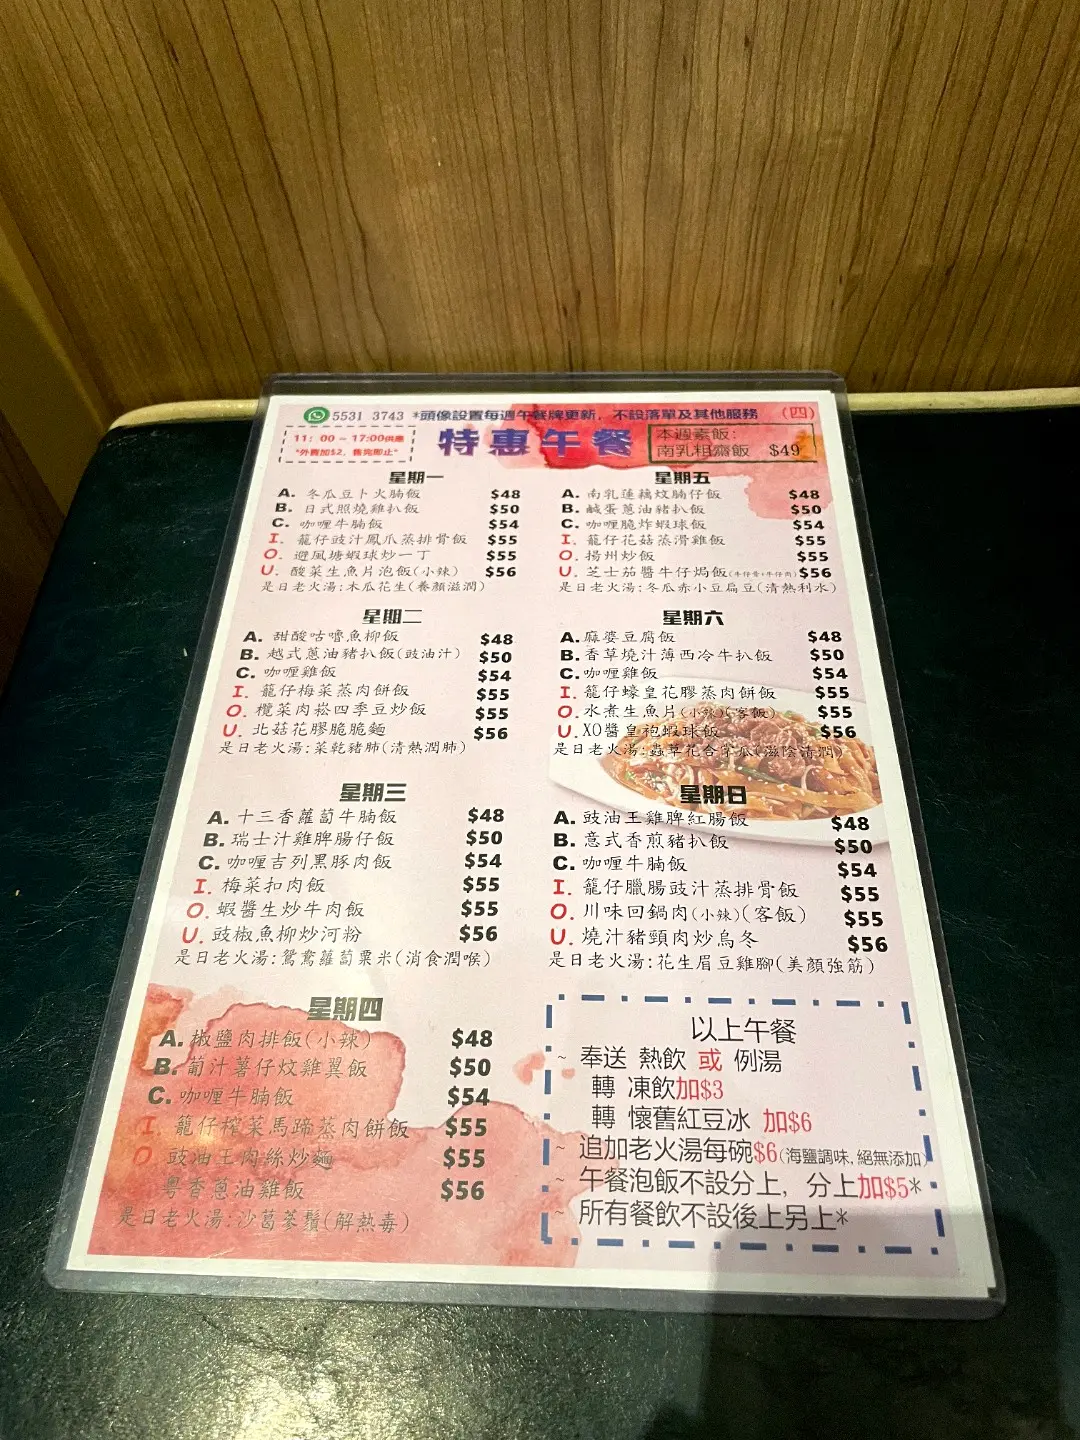 5531 3743 *頭像設置每週午餐牌更新，不設落單及其他服務 (四)
11：00 - 17:00供應
*外賣加$2，售完即止*
特惠午餐
本週素飯：
南乳粗齋飯 $49
星期一
A. 冬瓜豆卜火腩飯 $48
B. 日式照燒雞扒飯 $50
C. 咖喱牛腩飯 $54
I. 籠仔豉汁鳳爪蒸排骨飯 $55
O. 避風塘蝦球炒一丁 $55
U. 酸菜生魚片泡飯(小辣) $56
是日老火湯:木瓜花生(養顏滋潤)
星期二
A. 甜酸咕嚕魚柳飯 $48
B. 越式蔥油豬扒飯(豉油汁) $50
C. 咖喱雞飯 $54
I. 籠仔梅菜蒸肉餅飯 $55
O. 欖菜肉崧四季豆炒飯 $55
U. 北菇花膠脆脆麵 $56
是日老火湯:菜乾豬肺(清熱潤肺)
星期三
A. 十三香蘿蔔牛腩飯 $48
B. 瑞士汁雞脾腸仔飯 $50
C. 咖喱吉列黑豚肉飯 $54
I. 梅菜扣肉飯 $55
O. 蝦醬生炒牛肉飯 $55
U. 豉椒魚柳炒河粉 $56
是日老火湯:鴛鴦蘿蔔粟米(消食潤喉)
星期四
A. 椒鹽肉排飯(小辣) $48
B. 葡汁薯仔炆雞翼飯 $50
C. 咖喱牛腩飯 $54
I. 籠仔榨菜馬蹄蒸肉餅飯 $55
O. 豉油王肉絲炒麵 $55
粵香蔥油雞飯 $56
是日老火湯:沙葛蔘鬚(解熱毒)
星期五
A. 南乳蓮藕炆腩仔飯 $48
B. 鹹蛋蔥油豬扒飯 $50
C. 咖喱脆炸蝦球飯 $54
I. 籠仔花菇蒸滑雞飯 $55
O. 揚州炒飯 $55
U. 芝士茄醬牛仔焗飯(牛仔骨+牛仔肉) $56
是日老火湯:冬瓜赤小豆扁豆(清熱利水)
星期六
A. 麻婆豆腐飯 $48
B. 香草燒汁薄西冷牛扒飯 $50
C. 咖喱雞飯 $54
I. 籠仔蠔皇花膠蒸肉餅飯 $55
O. 水煮生魚片(小辣)(客飯) $55
U. XO醬皇袍蝦球飯 $56
是日老火湯:蟲草花合掌瓜(滋陰清潤)
星期日
A. 豉油王雞脾紅腸飯 $48
B. 意式香煎豬扒飯 $50
C. 咖喱牛腩飯 $54
I. 籠仔臘腸豉汁蒸排骨飯 $55
O. 川味回鍋肉(小辣)(客飯) $55
U. 燒汁豬頸肉炒烏冬 $56
是日老火湯:花生眉豆雞腳(美顏強筋)
以上午餐
~ 奉送 熱飲 或 例湯
轉 凍飲加$3
轉 懷舊紅豆冰 加$6
~ 追加老火湯每碗$6(海鹽調味,絕無添加)
~ 午餐泡飯不設分上，分上加$5*
~ 所有餐飲不設後上另上*